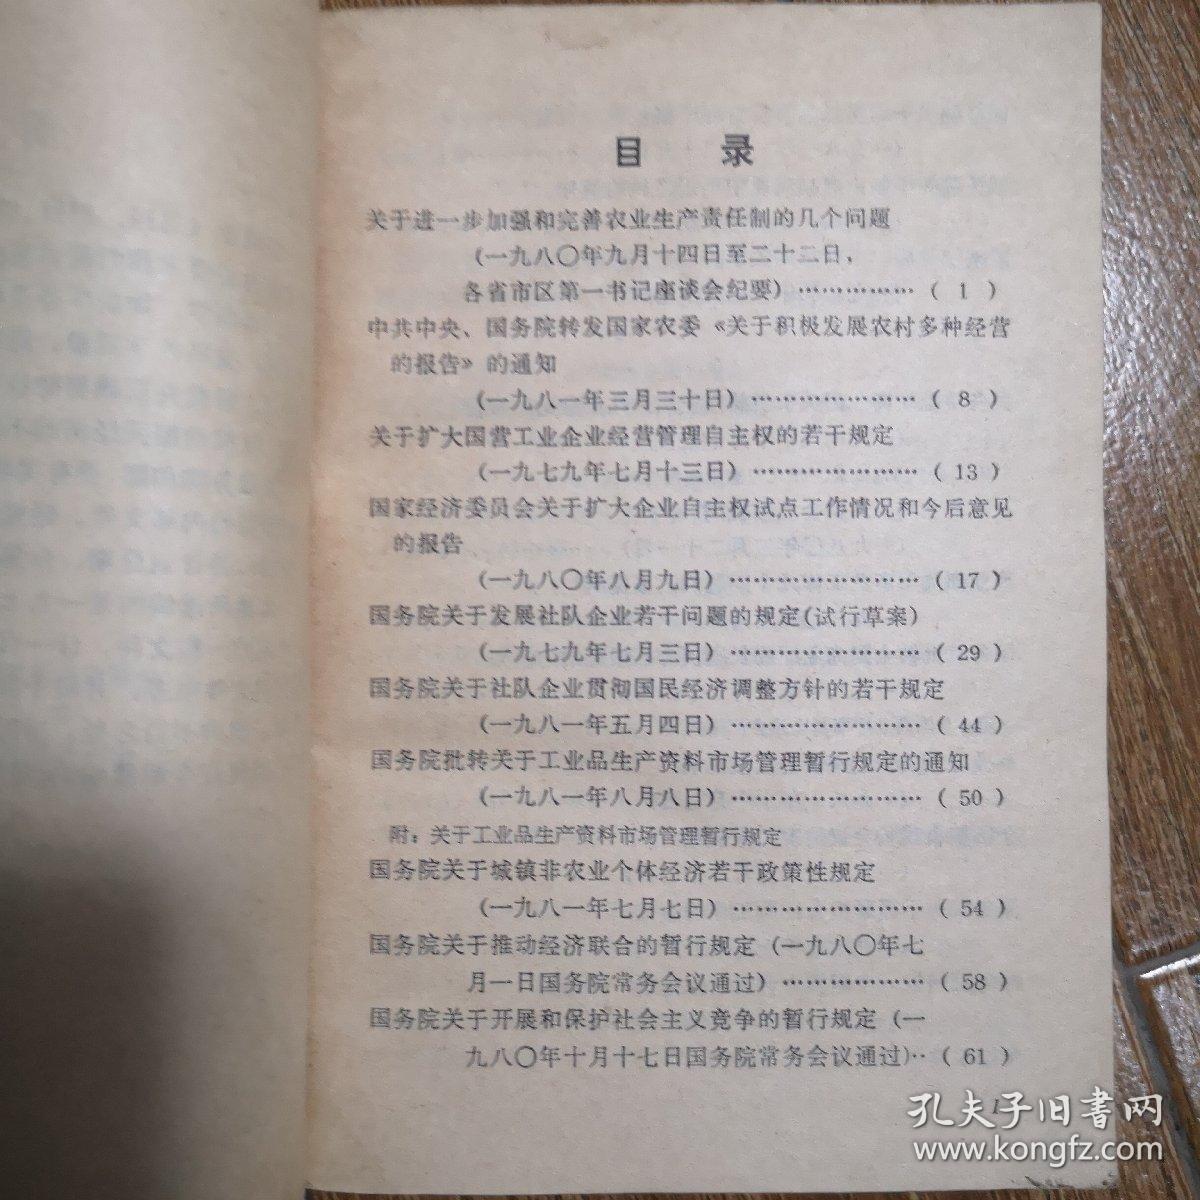 目 录
关于进一步加强和完善农业生产责任制的几个问题
(一九八〇年九月十四日至二十二日，
各省市区第一书记座谈会纪要) …………… ( 1 )
中共中央、国务院转发国家农委《关于积极发展农村多种经营
的报告》的通知
(一九八一年三月三十日) ………………… ( 8 )
关于扩大国营工业企业经营管理自主权的若干规定
(一九七九年七月十三日) ………………… ( 13 )
国家经济委员会关于扩大企业自主权试点工作情况和今后意见
的报告
(一九八〇年八月九日) …………………… ( 17 )
国务院关于发展社队企业若干问题的规定(试行草案)
(一九七九年七月三日) …………………… ( 29 )
国务院关于社队企业贯彻国民经济调整方针的若干规定
(一九八一年五月四日) …………………… ( 44 )
国务院批转关于工业品生产资料市场管理暂行规定的通知
(一九八一年八月八日) …………………… ( 50 )
附：关于工业品生产资料市场管理暂行规定
国务院关于城镇非农业个体经济若干政策性规定
(一九八一年七月七日) …………………… ( 54 )
国务院关于推动经济联合的暂行规定 (一九八〇年七
月一日国务院常务会议通过) ……………… ( 58 )
国务院关于开展和保护社会主义竞争的暂行规定 (一
九八〇年十月十七日国务院常务会议通过)‥ ( 61 )
1
孔夫子旧书网
www.kongfz.com